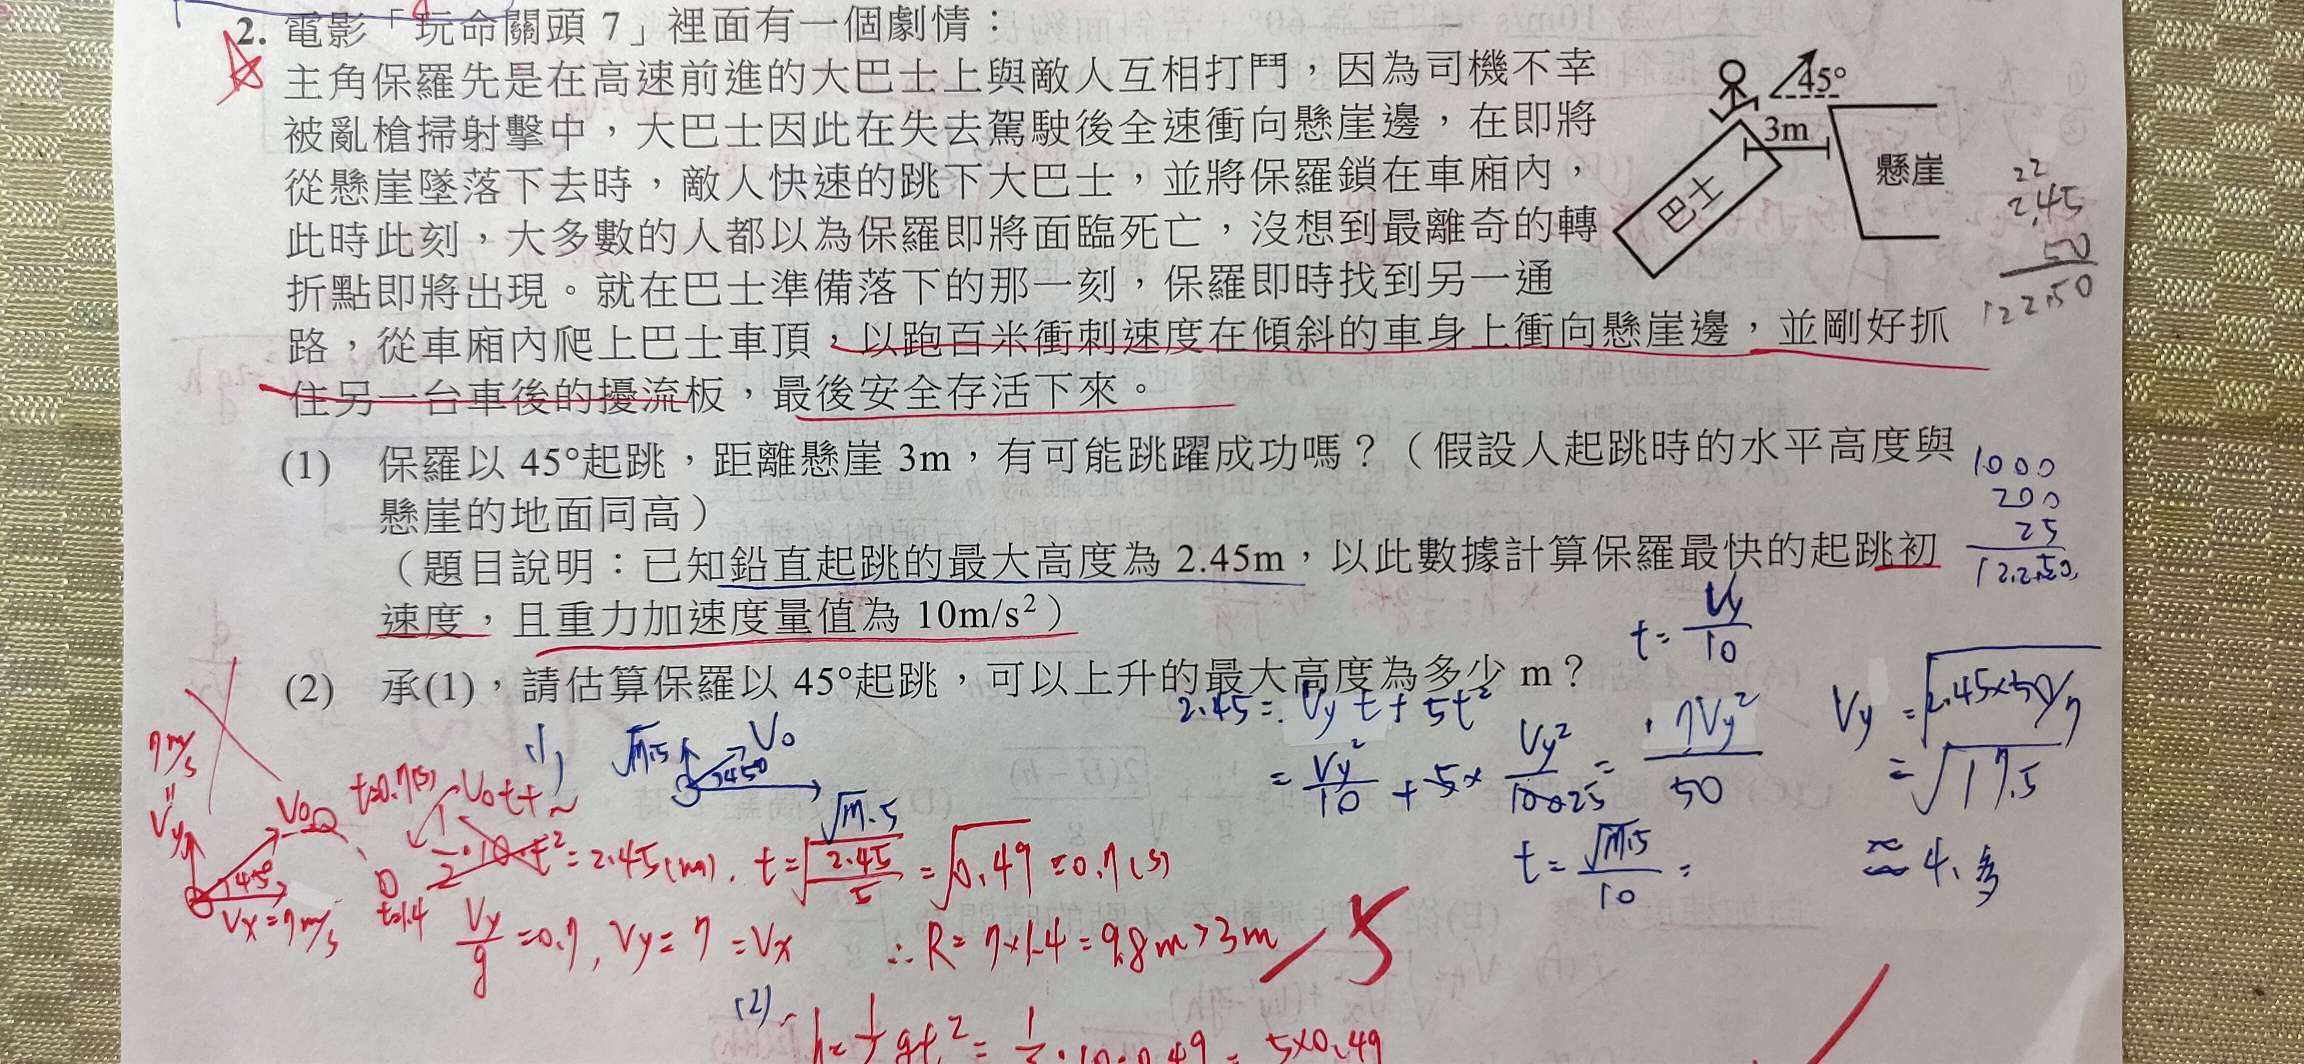 2. 電影「玩命關頭 7」裡面有一個劇情：
主角保羅先是在高速前進的大巴士上與敵人互相打鬥，因為司機不幸
被亂槍掃射擊中，大巴士因此在失去駕駛後全速衝向懸崖邊，在即將
從懸崖墜落下去時，敵人快速的跳下大巴士，並將保羅鎖在車廂內，
此時此刻，大多數的人都以為保羅即將面臨死亡，沒想到最離奇的轉
折點即將出現。就在巴士準備落下的那一刻，保羅即時找到另一通
路，從車廂內爬上巴士車頂，以跑百米衝刺速度在傾斜的車身上衝向懸崖邊，並剛好抓
住另一台車後的擾流板，最後安全存活下來。
45°
3m
懸崖
巴士
22
2.45
50
122.50
(1) 保羅以 45°起跳，距離懸崖 3m，有可能跳躍成功嗎？（假設人起跳時的水平高度與
懸崖的地面同高）
（題目說明：已知鉛直起跳的最大高度為 2.45m，以此數據計算保羅最快的起跳初
速度，且重力加速度量值為 10m/s²）
1000
200
25
(2) 承(1)，請估算保羅以 45°起跳，可以上升的最大高度為多少 m？
t = Vy/10
2.45 = Vy t + 5t²
= Vy²/10 + 5×
= 7Vy²/50
Vy = √2.45×50/7
= √17.5
≈ 4.多
t = √17.5/10 =
(1)
√17.5
V₀
45°
√17.5
7 m/s
Vy
V₀
45°
Vx = 7 m/s
t=0.7(s)
t=1.4
V₀t +
1/2·10·t² = 2.45(m), t = √2.45/5 = √0.49 = 0.7(s)
Vy/g = 0.7, Vy = 7 = Vx ∴ R = 7×1.4 = 9.8m > 3m
(2)
h = 1/2 gt² = 1/2·10·0.49 = 5×0.49